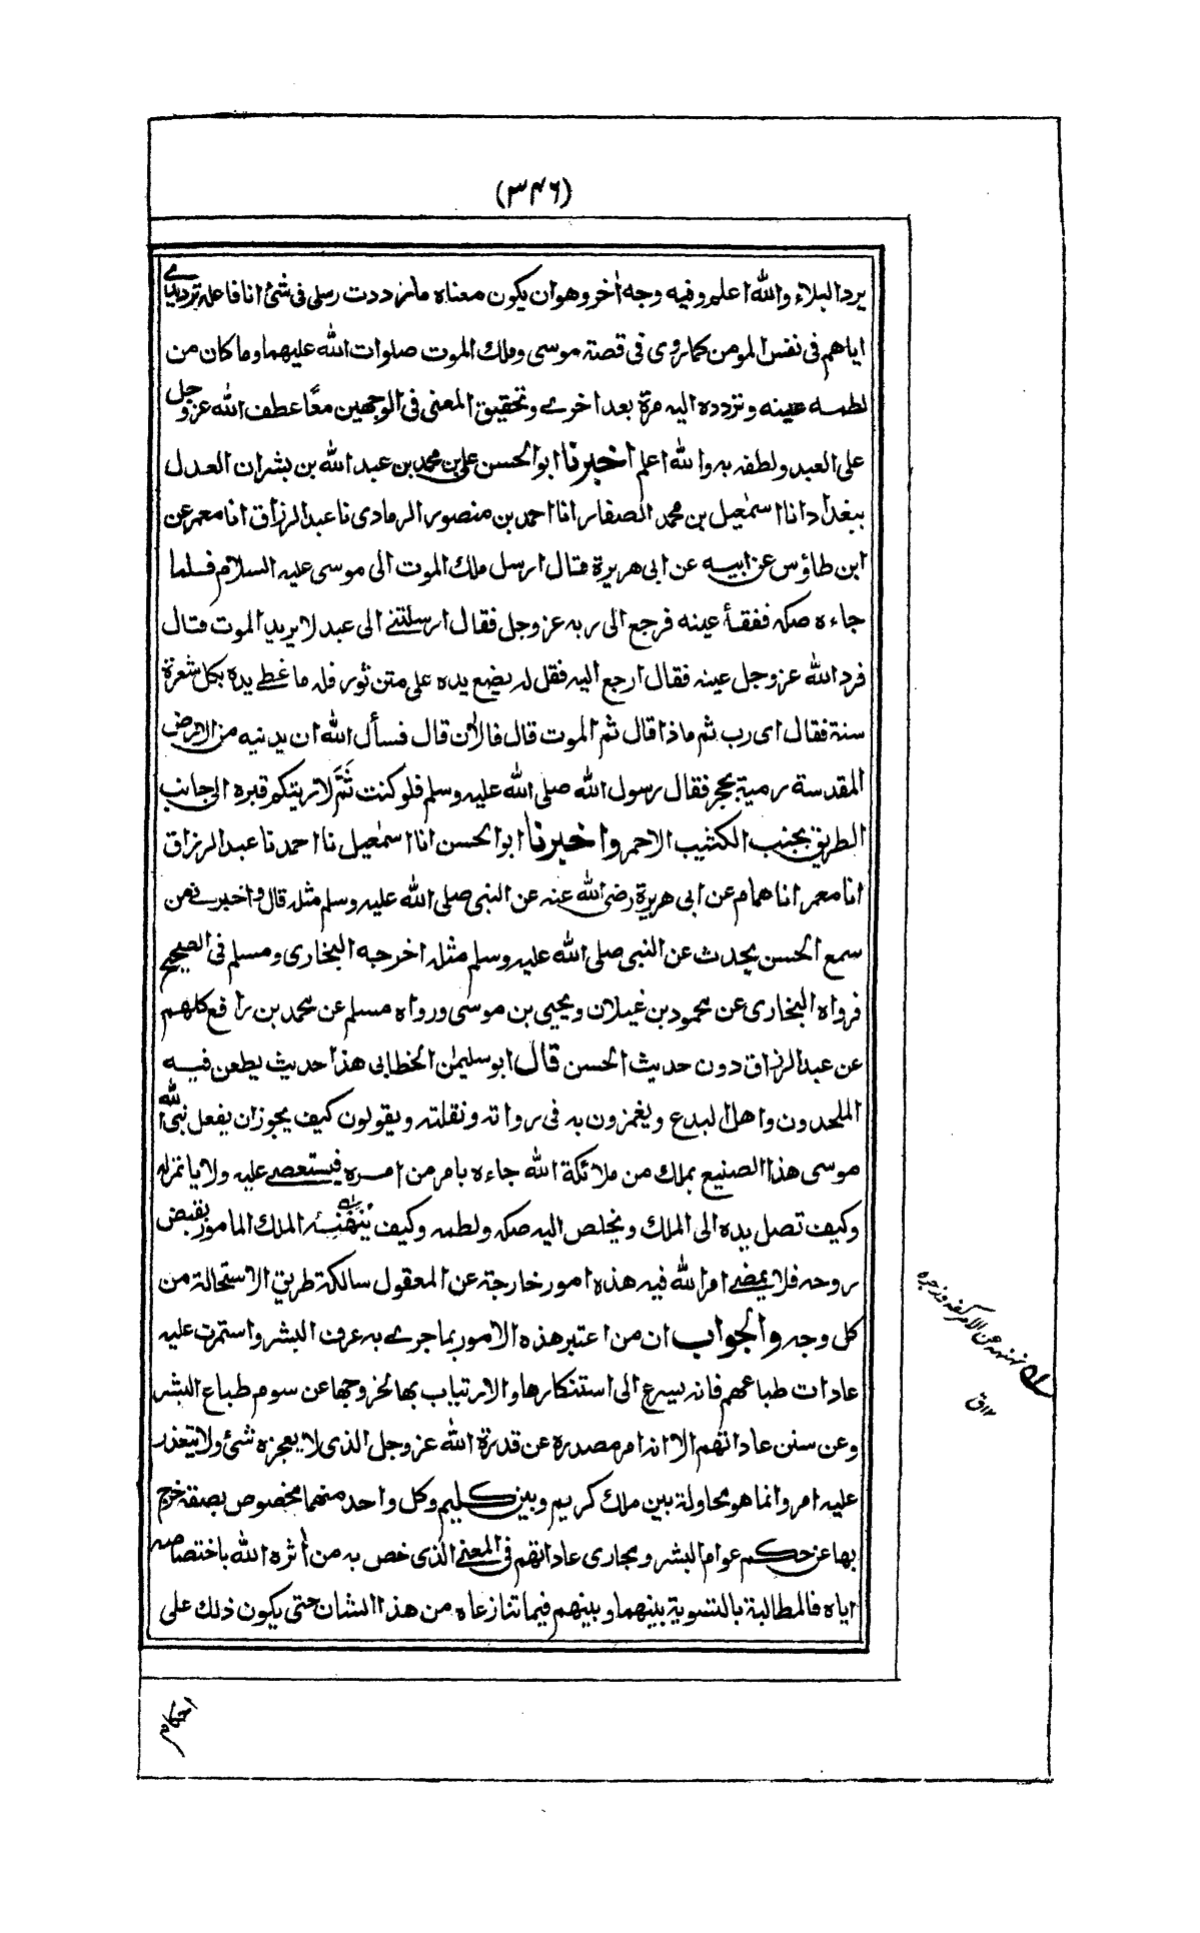 (٣٤٦)
يرد البلاء والله اعلم وفيه وجه اٰخر وهو ان يكون معناه ما رددت رسلى فى شئ انا فاعله ترديدى
اياهم فى نفس المومن كما روى فى قصة موسى وملك الموت صلوات الله عليهما وما كان من
لطمه عينه وتردده اليه مرة بعد اخرى وتحقيق المعنى فى الوجهين معًا عطف الله عز وجل
على العبد ولطفه به والله اعلم اخبرنا ابو الحسن على بن محمد بن عبد الله بن بشران العدل
ببغداد انا اسمٰعيل بن محمد الصفار انا احمد بن منصور الرمادى نا عبد الرزاق انا معمر عن
ابن طاؤس عن ابيه عن ابى هريرة قال ارسل ملك الموت الى موسى عليه السلام فلما
جاءه صكه ففقأ عينه فرجع الى ربه عز وجل فقال ارسلتنى الى عبد لا يريد الموت قال
فرد الله عز وجل عينه فقال ارجع اليه فقل له يضع يده على متن ثور فله ما غطى يده بكل شعرة
سنة فقال اى رب ثم ماذا قال ثم الموت قال فالاٰن قال فسأل الله ان يدنيه من الارض
المقدسة رمية بحجر فقال رسول الله صلى الله عليه وسلم فلو كنت ثَمَّ لاريتكم قبره الى جانب
الطريق بجنب الكثيب الاحمر واخبرنا ابو الحسن انا اسمٰعيل نا احمد نا عبد الرزاق
انا معمر انا همام عن ابى هريرة رضى الله عنه عن النبى صلى الله عليه وسلم مثله قال واخبرنى من
سمع الحسن يحدث عن النبى صلى الله عليه وسلم مثله اخرجه البخارى ومسلم فى الصحيح
فرواه البخارى عن محمود بن غيلان ويحيى بن موسى ورواه مسلم عن محمد بن رافع كلهم
عن عبد الرزاق دون حديث الحسن قال ابو سليمٰن الخطابى هذا حديث يطعن فيه
الملحدون واهل البدع ويغمزون به فى رواته ونقلته ويقولون كيف يجوز ان يفعل نبى الله
موسى هذا الصنيع بملك من ملائكة الله جاءه بامر من امره فيستعصى عليه ولا ياتمر له
وكيف تصل يده الى الملك ويخلص اليه صكه ولطمه وكيف ينهنهه الملك المامور بقبض
روحه فلا يمضى امر الله فيه هذه امور خارجة عن المعقول سالكة طريق الاستحالة من
كل وجه والجواب ان من اعتبر هذه الامور بما جرى به عرف البشر واستمرت عليه
عادات طباعهم فانه يسرع الى استنكارها والارتياب بها لخروجها عن سوم طباع البشر
وعن سنن عاداتهم الا انه امر مصدره عن قدرة الله عز وجل الذى لا يعجزه شئ ولا يتعذر
عليه امر وانما هو محاولة بين ملك كريم وبين كليم وكل واحد منهما مخصوص بصفة خرج
بها عن حكم عوام البشر ومجارى عاداتهم فى المعنى الذى خص به من اٰثره الله باختصاصه
اياه فالمطالبة بالتسوية بينهما وبينهم فيما تنازعاه من هذا الشان حتى يكون ذلك على
نهنهه عن الامر كفه وزجره
١٢ ق
احكام